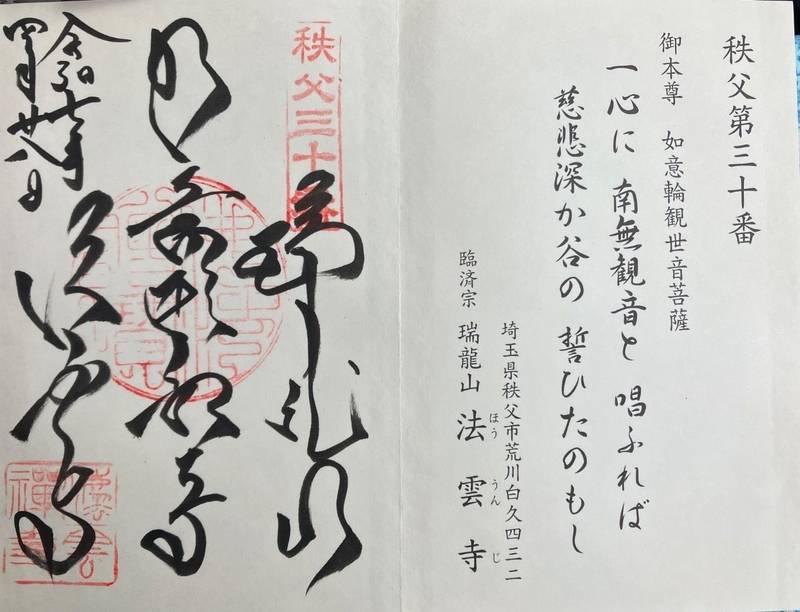 秩父第三十番
御本尊 如意輪観世音菩薩
一心に 南無観音と 唱ふれば
慈悲深か谷の 誓ひたのもし
埼玉県秩父市荒川白久四三二
臨済宗 瑞龍山 法雲寺
ほう うん じ
秩父三十番
瑞龍山
法雲寺
令和七年
四月廿八日